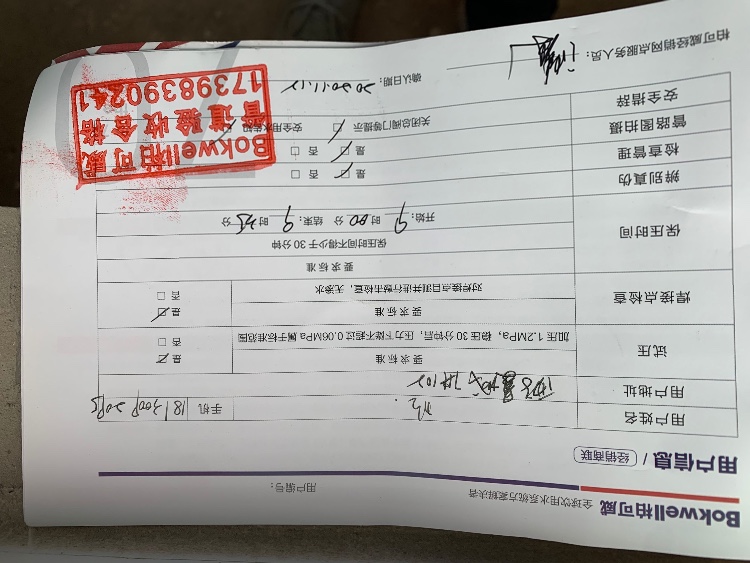 Bokwell柏可威
全球饮用水系统方案解决者
用户编号：
用户信息 / 经销商联
用户姓名
手机
用户地址
试压
要求标准
是 否
加压1.2MPa，稳压30分钟后，压力下降不超过0.06MPa属于标准范围
焊接点检查
要求标准
是 否
对焊接点目测并进行敲击检查，无渗水
保压时间
要求标准
保压时间不得少于30分钟
开始： 9 时 00 分 结束： 9 时 分
辨别真伪
是 否
检查管理
是 否
管路图拍摄
安全措辞
关闭总阀门等提示
安全用水告知
Bokwell柏可威
管道验收合格
17398390241
柏可威经销网点服务人员：
确认日期： 2020.11.12